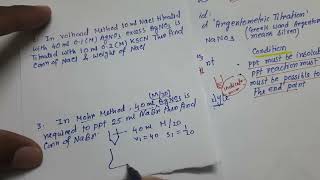 2. In Volhard Method 50 ml NaCl titrated
with 40 ml 0.1 (M) AgNO3 excess AgNO3 is
titrated with 10 ml 0.2 (M) KSCN Then find
Conⁿ of NaCl & weight of NaCl
3. In Mohr Method, 40 ml (M/20) AgNO3 is
required to ppt 25 ml NaBr then find
Conⁿ of NaBr
40 ml M/20
V1 = 40 S1 = 1/20
"Argentometric Titration"
(Greeic word Argentum
means Silver)
NaNO3
Condition
ppt must be insolub
ppt reaction must
indicator must be
must be possible to
the end point